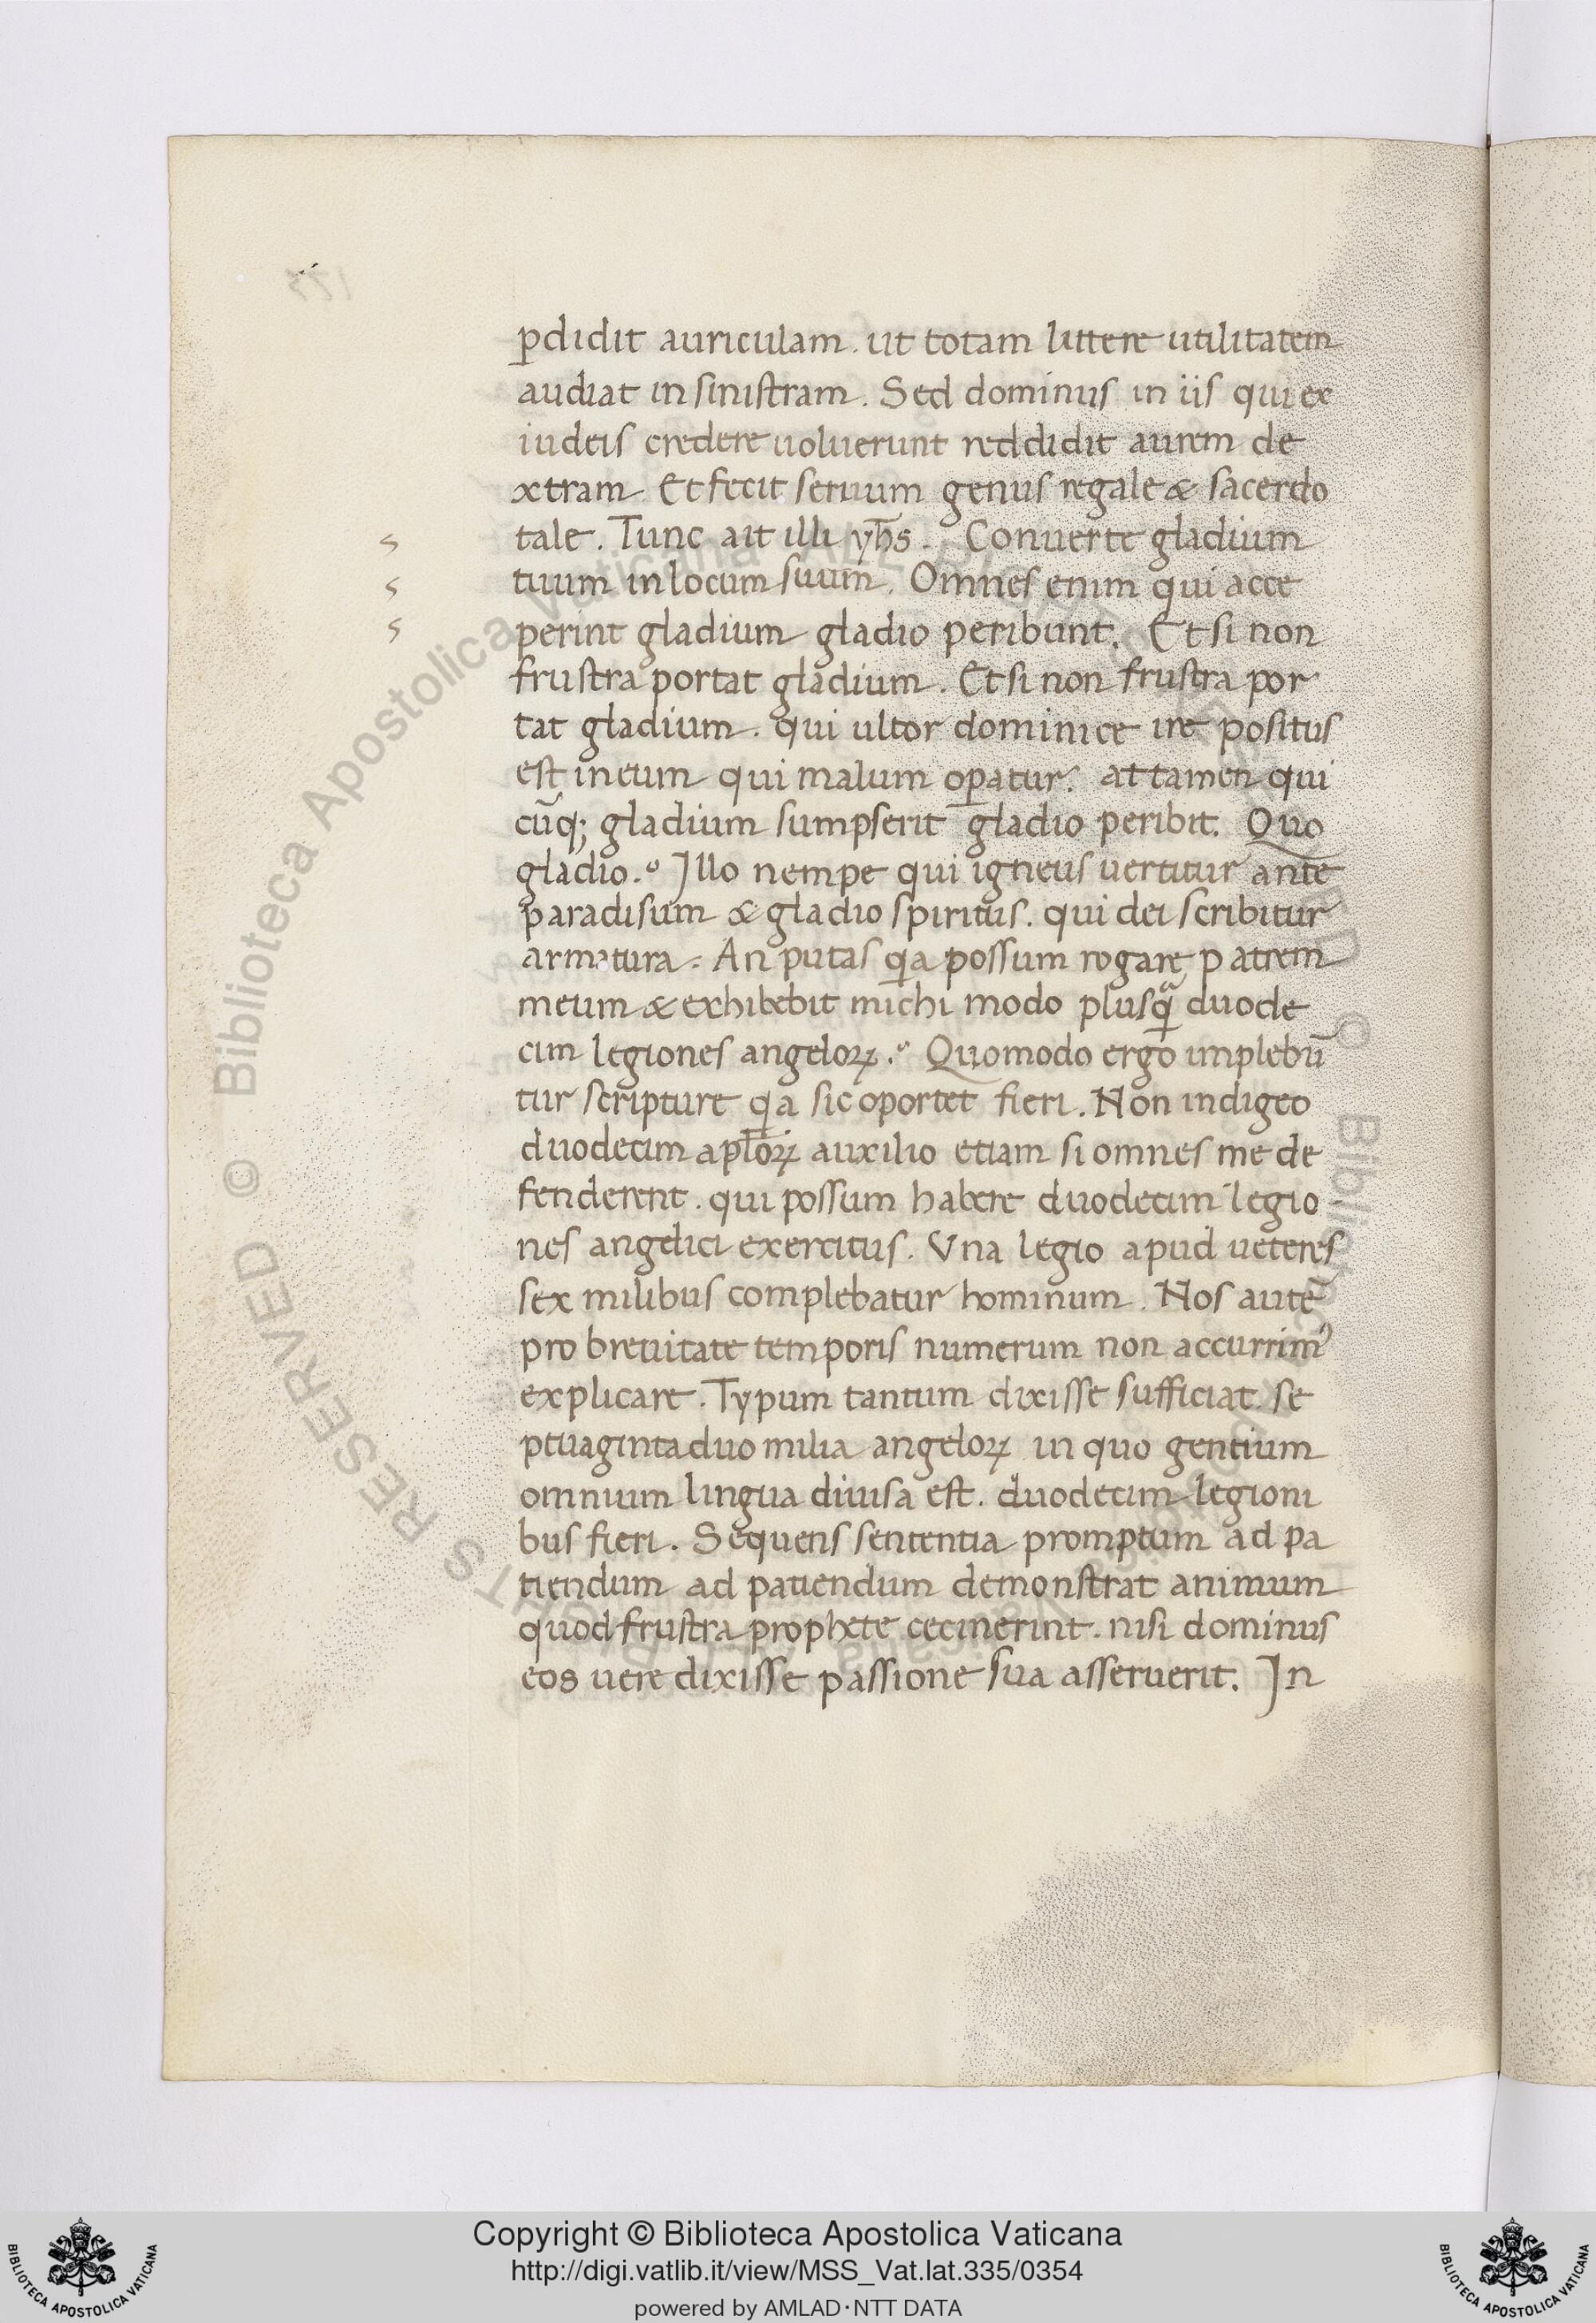 p̱didit auriculam. ut totam littere utilitatem
audiat in sinistram. Sed dominus in iis qui ex
iudeis credere uoluerunt reddidit aurem de
xtram. Et fecit seruum genus regale & sacerdo
tale. Tunc ait illi yh̄s. Conuerte gladium
tuum in locum suum. Omnes enim qui acce
perint gladium gladio peribunt. Et si non
frustra portat gladium. Et si non frustra por
tat gladium. qui ultor dominice ire positus
est in eum qui malum op̱atur. attamen qui
cūq; gladium sumpserit gladio peribit. Quo
gladio.° Illo nempe qui igneus uertitur ante
paradisum & gladio spiritus. qui dei scribitur
armatura. An putas qa possum rogare patrem
meum & exhibebit michi modo plusqᵃ duode
cim legiones angeloꝝ.° Quomodo ergo implebū
tur scripture qa sic oportet fieri. Non indigeo
duodecim apl̄oꝝ auxilio etiam si omnes me de
fenderent. qui possum habere duodecim legio
nes angelici exercitus. Vna legio apud ueteres
sex milibus complebatur hominum. Nos autē
pro breuitate temporis numerum non accurrimꝰ
explicare. Typum tantum dixisse sufficiat. se
ptuaginta duo milia angeloꝝ in quo gentium
omnium lingua diuisa est. duodecim legioni
bus fieri. Sequens sententia promptum ad pa
tiendum ad patiendum demonstrat animum
quod frustra prophete cecinerint. nisi dominus
eos uere dixisse passione sua asseruerit. In
s
s
s
Biblioteca Apostolica Vaticana
Copyright © Biblioteca Apostolica Vaticana
http://digi.vatlib.it/view/MSS_Vat.lat.335/0354
powered by AMLAD·NTT DATA
BIBLIOTECA APOSTOLICA VATICANA
BIBLIOTECA APOSTOLICA VATICANA